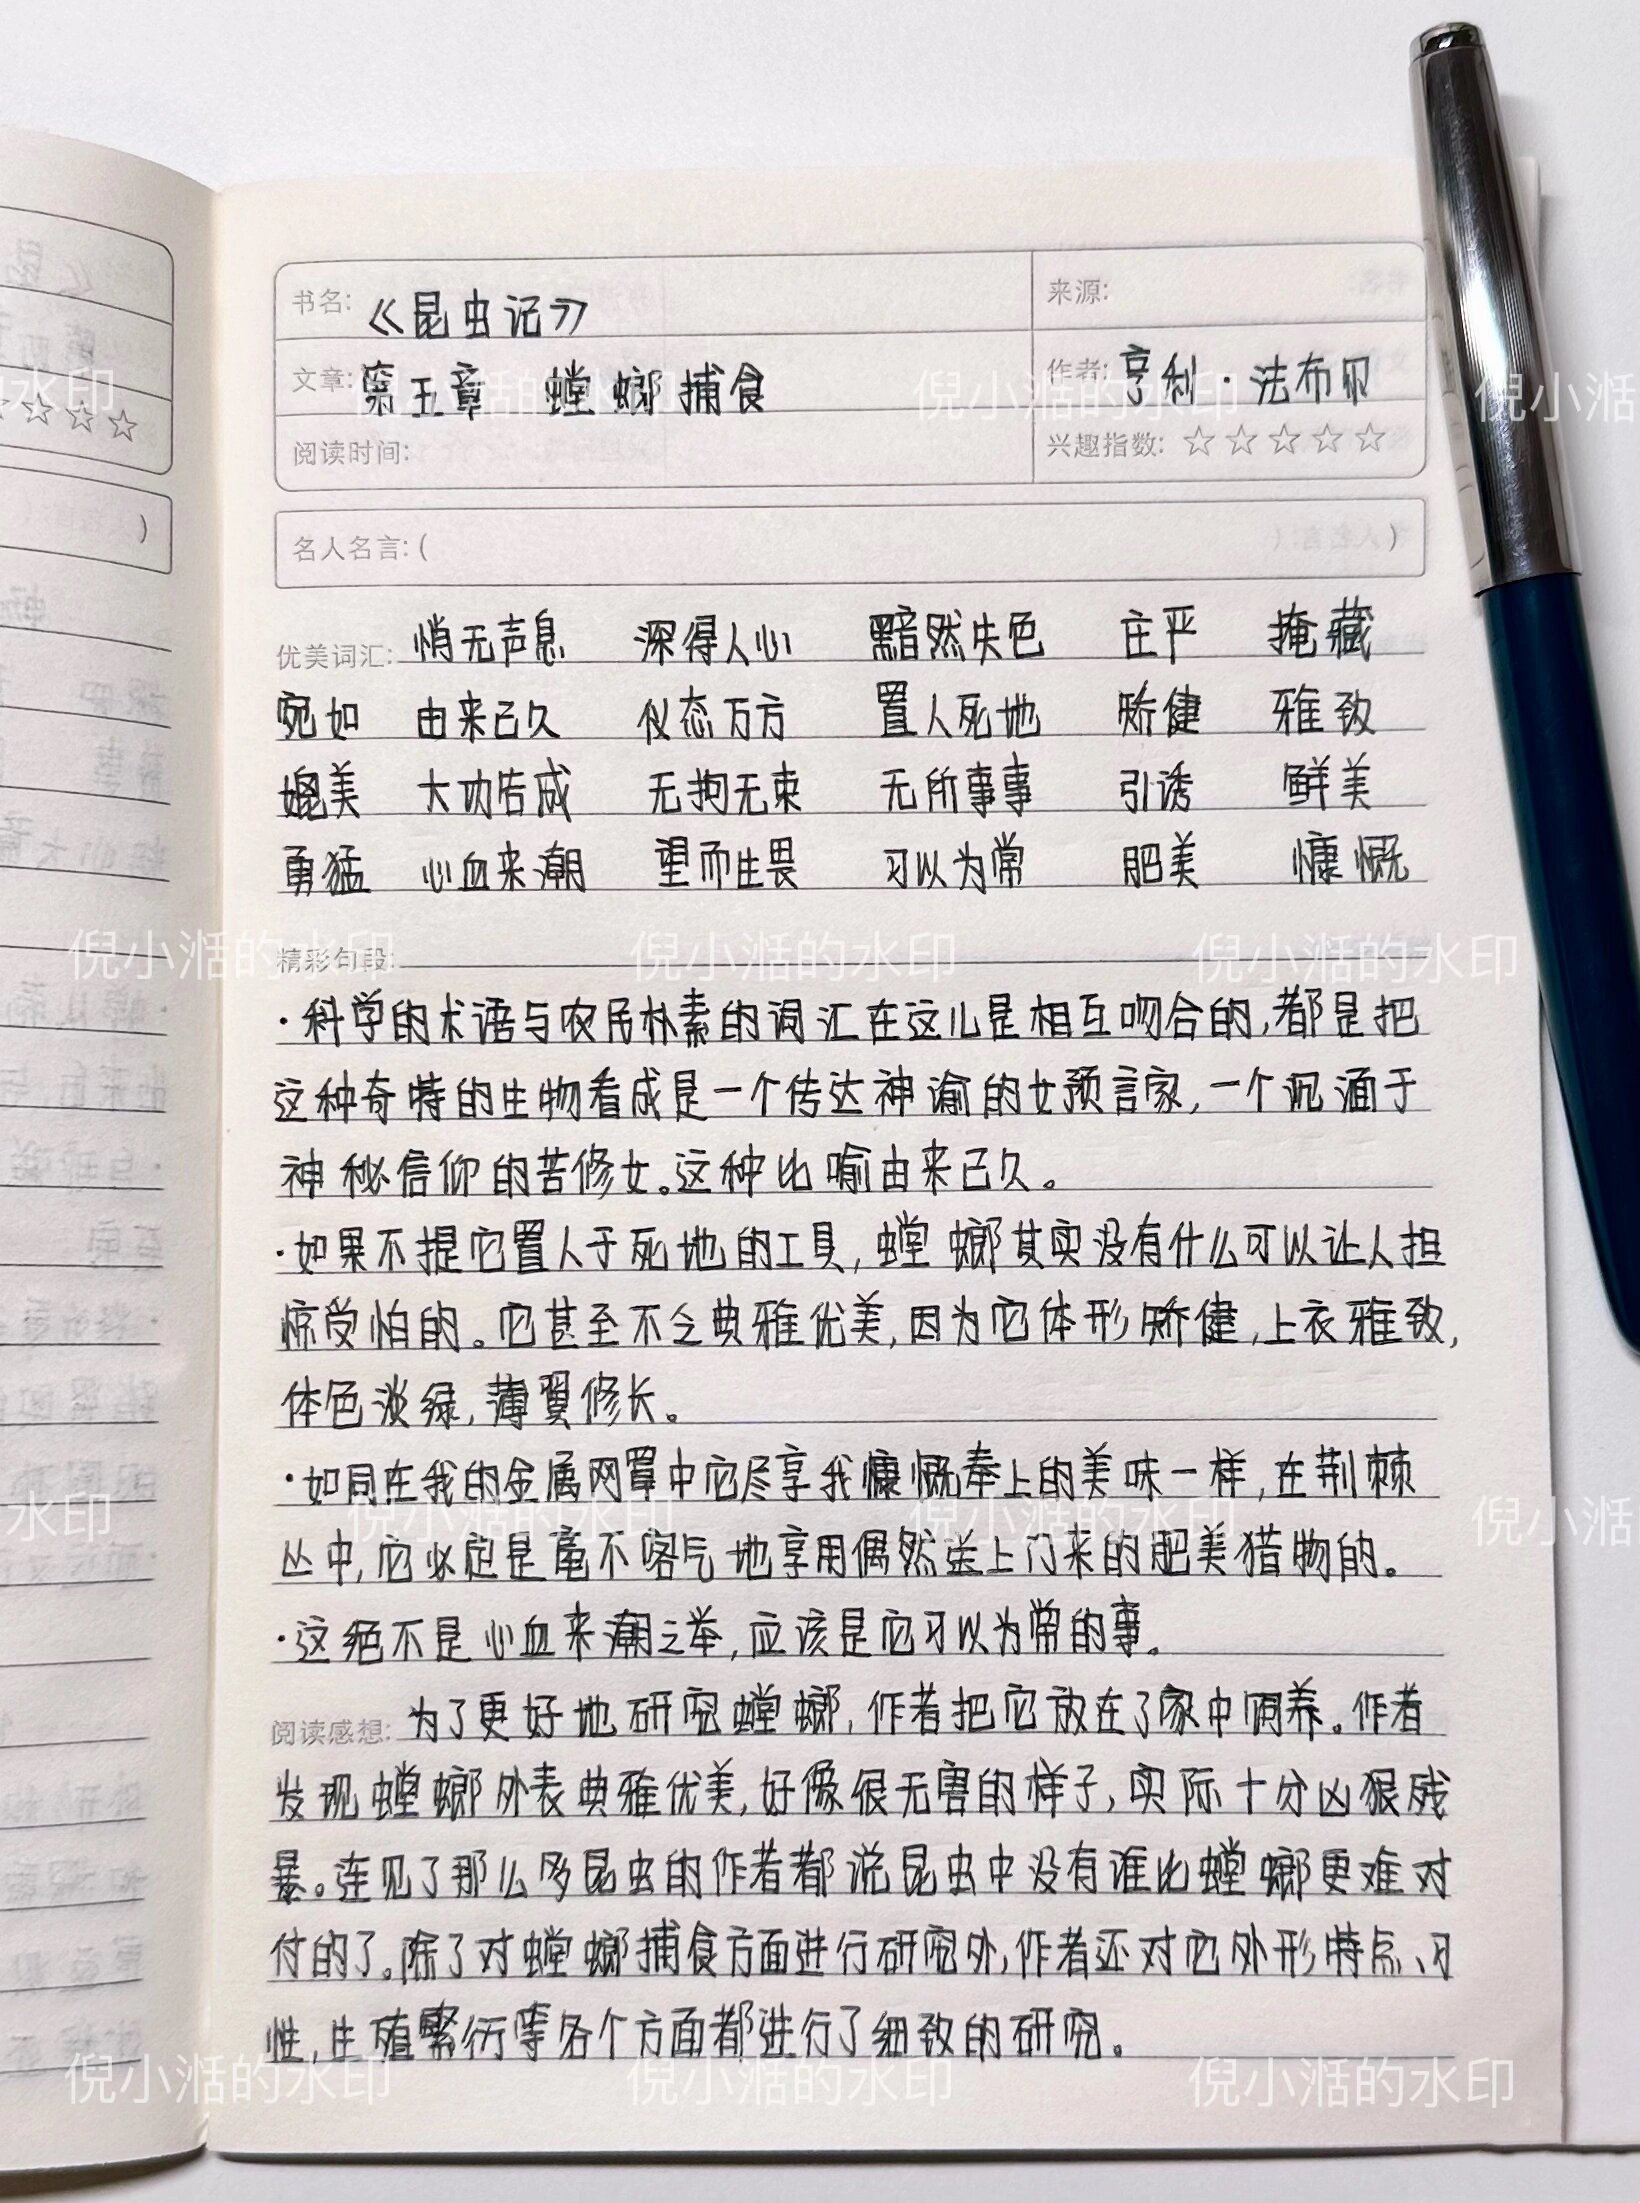 书名: 《昆虫记》 来源:
文章: 第五章 螳螂捕食 作者: 亨利·法布尔
阅读时间: 兴趣指数: ☆☆☆☆☆
名人名言: ( )
优美词汇: 悄无声息 深得人心 黯然失色 庄严 掩藏
宛如 由来已久 仪态万方 置人死地 矫健 雅致
媲美 大功告成 无拘无束 无所事事 引诱 鲜美
勇猛 心血来潮 望而生畏 习以为常 肥美 慷慨
精彩句段:
·科学的术语与农民朴素的词汇在这儿是相互吻合的,都是把
这种奇特的生物看成是一个传达神谕的女预言家,一个沉湎于
神秘信仰的苦修女。这种比喻由来已久。
·如果不提它置人于死地的工具,螳螂其实没有什么可以让人担
惊受怕的。它甚至不乏典雅优美,因为它体形矫健,上衣雅致,
体色淡绿,薄翼修长。
·如同在我的金属网罩中它尽享我慷慨奉上的美味一样,在荆棘
丛中,它必定是毫不客气地享用偶然送上门来的肥美猎物的。
·这绝不是心血来潮之举,应该是它习以为常的事。
阅读感想: 为了更好地研究螳螂,作者把它放在了家中饲养。作者
发现螳螂外表典雅优美,好像很无害的样子,实际十分凶狠残
暴。连见了那么多昆虫的作者都说昆虫中没有谁比螳螂更难对
付的了。除了对螳螂捕食方面进行研究外,作者还对它外形特点、习
性,生殖繁衍等各个方面都进行了细致的研究。
倪小湉的水印